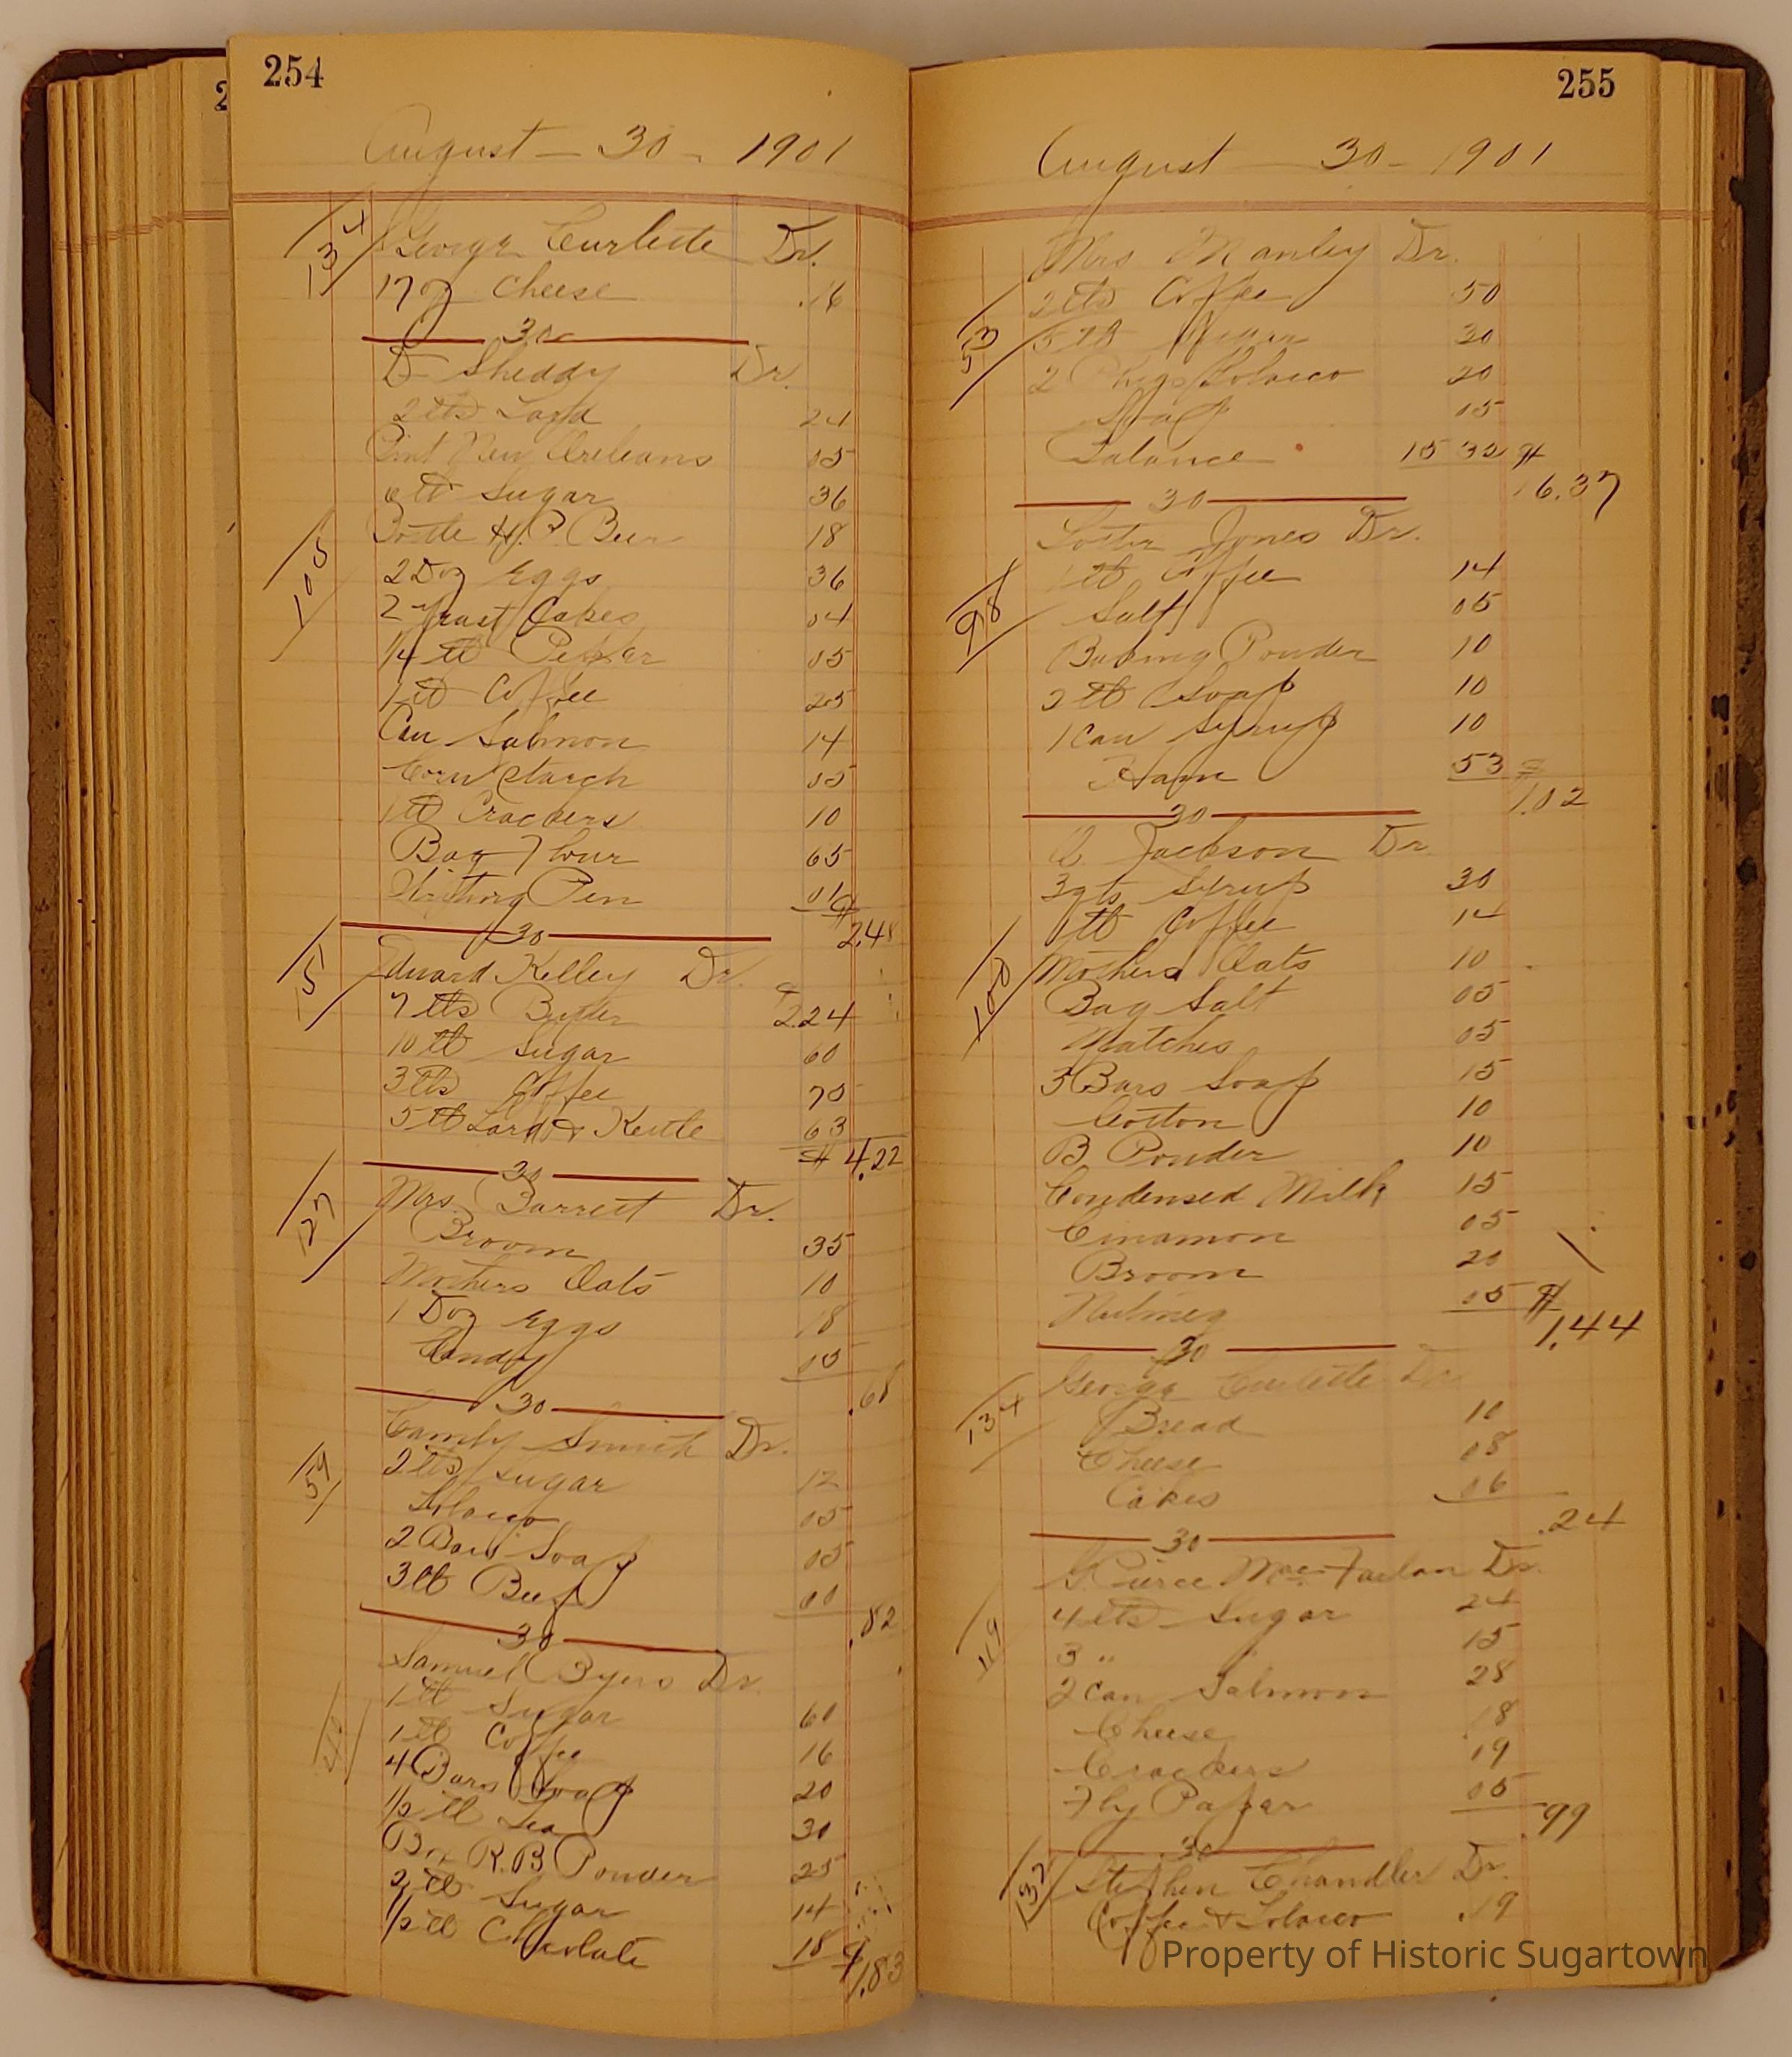 254
August — 30 - 1901
134 George Curlette Dr.
17 oz Cheese .16
30
D Sheddy Dr.
2 lbs Lard 24
Pint New Orleans 05
6 lb Sugar 36
Bottle H.P. Beer 18
105
2 Doz Eggs 36
2 Yeast Cakes 04
1/4 lb Pepper 05
1 lb Coffee 25
Can Salmon 14
Corn Starch 05
1 lb Crackers 10
Bag Flour 65
Pen 01
$ 2.48
30
151 Eduard Kelley Dr.
7 lbs Butter $ 2.24
10 lb Sugar 60
3 lbs Coffee 75
5 lb Lard & Kettle 63
$ 4.22
30
127 Mrs. Barrett Dr.
Broom 35
Mothers Oats 10
1 Doz Eggs 18
Candy 05
.68
30
Smith Dr.
59 2 lbs Sugar 12
Tobacco 05
2 Bars Soap 05
3 lb Beef 60
.82
30
Samuel Byers Dr.
1 lb Sugar 60
1 lb Coffee 16
4 Bars Soap 20
1/2 lb Tea 30
Box R.B Powder 25
2 lb Sugar 14
1/2 lb Chocolate 18
$ 1.83
255
August — 30 - 1901
Mrs Manley Dr.
2 lbs Coffee 50
53 5 lb Sugar 30
2 Tobacco 20
Soap 15
Balance 15 32 $
16.37
30
Jones Dr.
1 lb Coffee 14
98 Salt 05
Baking Powder 10
2 lb Soap 10
1 Can Syrup 10
Ham 53 $
1.02
30
Jackson Dr
3 qts Syrup 30
1 lb Coffee 14
100 Mothers Oats 10
Bag Salt 05
Matches 05
3 Bars Soap 15
Cotton 10
B Powder 10
Condensed Milk 15
Cinamon 05
Broom 20
Nutmeg 05 $
1.44
30
George Curlette Dr.
134 Bread 10
Cheese 08
Cakes 06
.24
30
G. Pierce MacFarlan Dr.
4 lbs Sugar 24
119 3 " " 15
2 Can Salmon 28
Cheese 18
Crackers 19
Fly Paper 05
.99
30
132 Stephen Chandler Dr.
Coffee & Tobacco .19
Property of Historic Sugartown